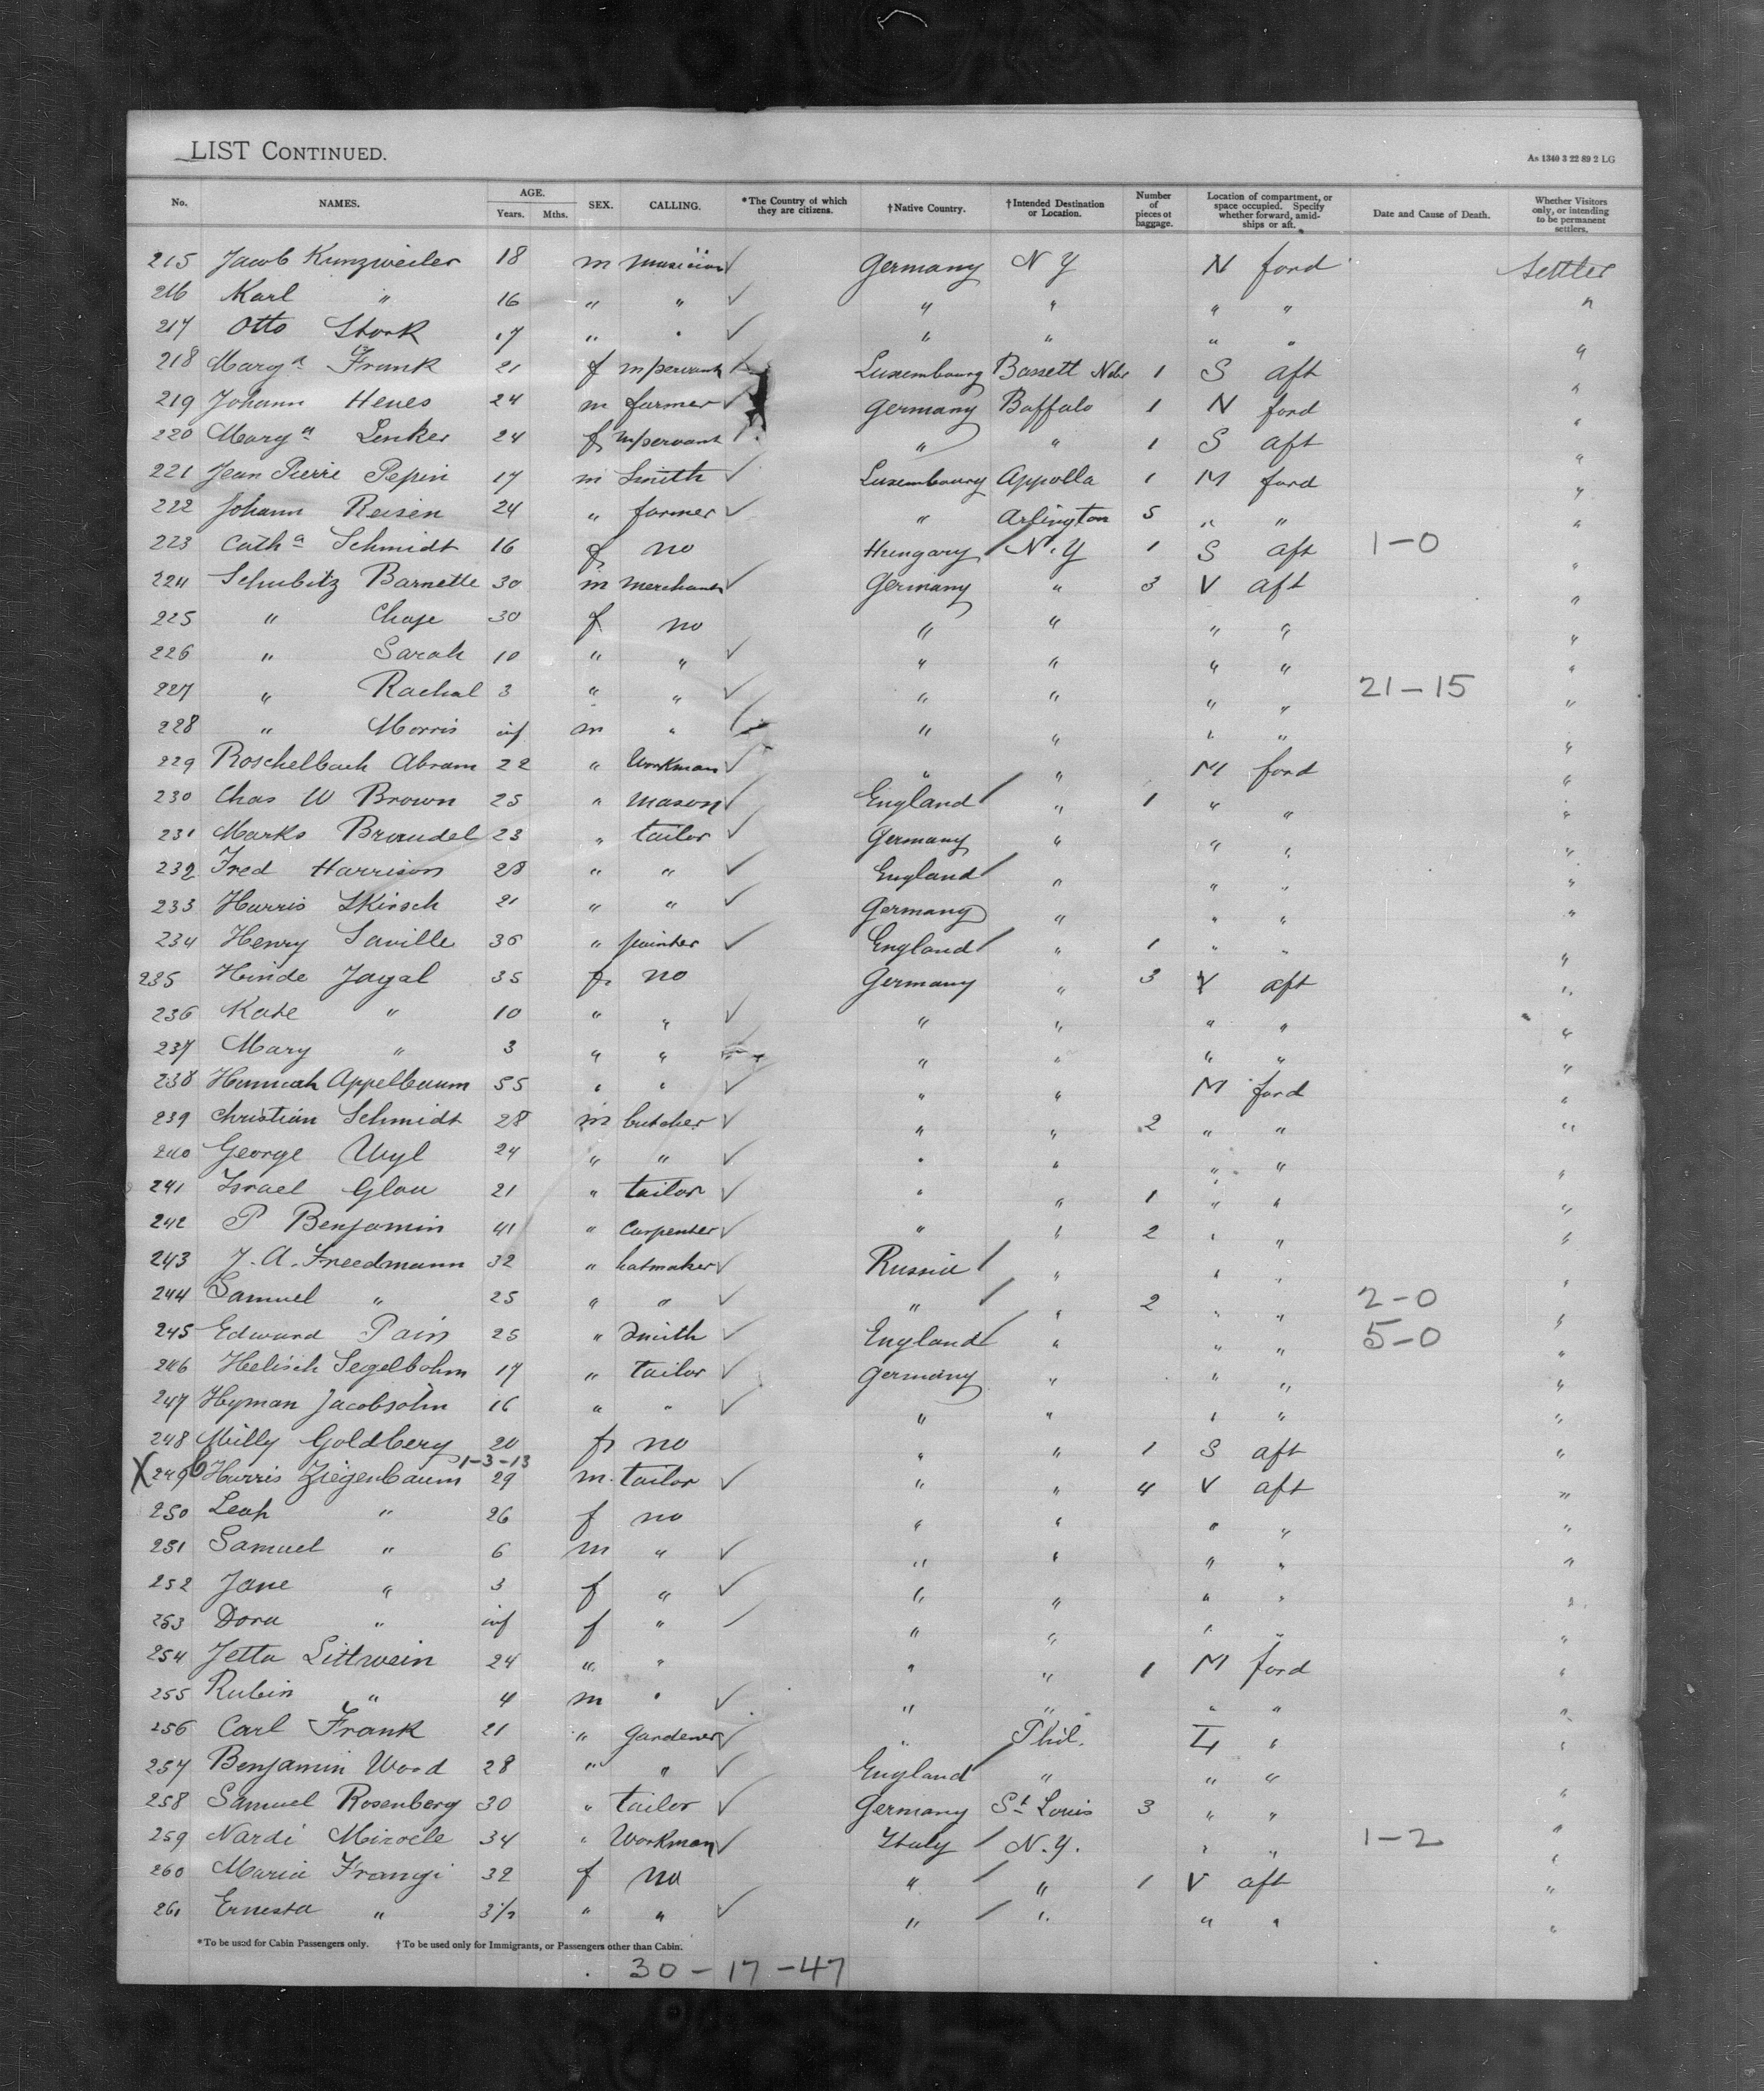 LIST CONTINUED.
As 1340 3 22 89 2 LG
No. NAMES. AGE. Years. Mths. SEX. CALLING. *The Country of which they are citizens. †Native Country. †Intended Destination or Location. Number of pieces of baggage. Location of compartment, or space occupied. Specify whether forward, amidships or aft. Date and Cause of Death. Whether Visitors only, or intending to be permanent settlers.
215 Jacob Kunzweiler 18 m musician ✓ Germany N Y N ford Settler
216 Karl " 16 " " ✓ " " " " "
217 Otto Stork 17 " " ✓ " " " " "
218 Marya Frank 21 f m/servant Luxembourg Bassett Nebr 1 S aft "
219 Johann Henes 24 m farmer ✓ Germany Buffalo 1 N ford "
220 Marya Lenker 24 f m/servant " " 1 S aft "
221 Jean Pierre Pepin 17 m Smith ✓ Luxembourg Appolla 1 M ford "
222 Johann Reisen 24 " farmer ✓ " Arlington 5 " " "
223 Catha Schmidt 16 f no Hungary / N.Y 1 S aft 1-0 "
224 Schubitz Barnette 30 m merchant ✓ Germany " 3 V aft "
225 " Chaje 30 f no " " " " "
226 " Sarah 10 " " ✓ " " " " "
227 " Rachal 3 " " ✓ " " " " 21-15 "
228 " Morris inf m " " " " " "
229 Roschelbach Abram 22 " Workman ✓ " " M ford "
230 Chas W Brown 25 " mason ✓ England / " 1 " " "
231 Marks Broudel 23 " tailor ✓ Germany " " " "
232 Fred Harrison 28 " " ✓ England / " " " "
233 Harris Skirsch 21 " " ✓ Germany " " " "
234 Henry Saville 36 " painter ✓ England / " 1 " " "
235 Hinde Jagal 35 f. no Germany " 3 V aft "
236 Kate " 10 " " ✓ " " " " "
237 Mary " 3 " " " " " " "
238 Hannah Appelbaum 55 " " ✓ " " M ford "
239 Christian Schmidt 28 m butcher ✓ " " 2 " " "
240 George Uyl 24 " " ✓ " " " " "
241 Israel Glau 21 " tailor ✓ " " 1 " " "
242 P Benjamin 41 " Carpenter ✓ " " 2 " " "
243 J. A. Freedmann 32 " hatmaker ✓ Russia / " " " "
244 Samuel " 25 " " ✓ " / " 2 " " 2-0 "
245 Edward Pain 25 " Smith ✓ England / " " " 5-0 "
246 Helisch Segelbohm 17 " tailor ✓ Germany " " " "
247 Hyman Jacobsohn 16 " " ✓ " " " " "
248 Milly Goldberg 20 f no " " 1 S aft "
1-3-13
X 249 Harris Ziegenbaum 29 m. tailor ✓ " " 4 V aft "
250 Leah " 26 f no " " " " "
251 Samuel " 6 m " ✓ " " " " "
252 Jane " 3 f " ✓ " " " " "
253 Dora " inf f " ✓ " " " " "
254 Jetta Littwein 24 " " " " 1 M ford "
255 Rubin " 4 m " ✓ " " " " "
256 Carl Frank 21 " gardener ✓ " Phil. " "
257 Benjamin Wood 28 " " ✓ England / " " " "
258 Samuel Rosenberg 30 " tailor ✓ Germany St Louis 3 " " "
259 Nardi Mirocle 34 " Workman ✓ Italy / N.Y. " " 1-2 "
260 Maria Frangi 32 f no " / " 1 V aft "
261 Ernesta " 3½ " " ✓ " / " " " "
*To be used for Cabin Passengers only. †To be used only for Immigrants, or Passengers other than Cabin.
30-17-47